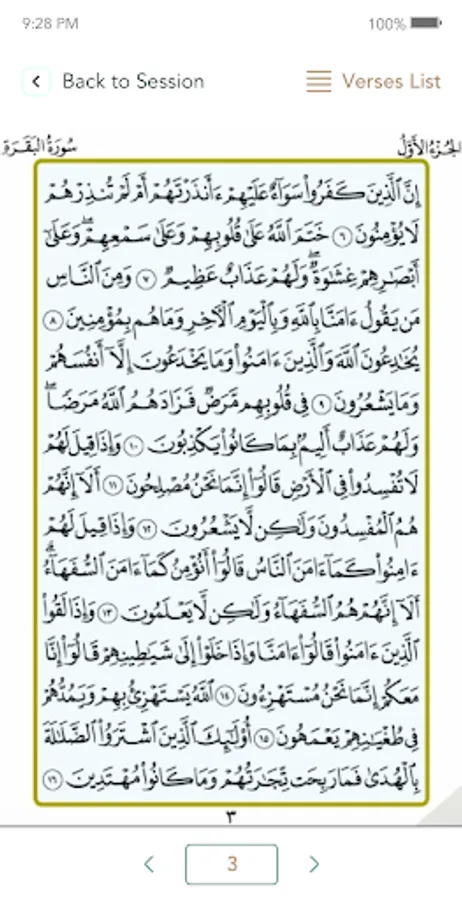 9:28 PM
100%
Back to Session
Verses List
سُورَةُ البَقَرَةِ
الجُزْءُ الأَوَّلُ
إِنَّ ٱلَّذِينَ كَفَرُوا۟ سَوَآءٌ عَلَيْهِمْ ءَأَنذَرْتَهُمْ أَمْ لَمْ تُنذِرْهُمْ
لَا يُؤْمِنُونَ ٦ خَتَمَ ٱللَّهُ عَلَىٰ قُلُوبِهِمْ وَعَلَىٰ سَمْعِهِمْ ۖ وَعَلَىٰٓ
أَبْصَـٰرِهِمْ غِشَـٰوَةٌ ۖ وَلَهُمْ عَذَابٌ عَظِيمٌ ٧ وَمِنَ ٱلنَّاسِ
مَن يَقُولُ ءَامَنَّا بِٱللَّهِ وَبِٱلْيَوْمِ ٱلْـَٔاخِرِ وَمَا هُم بِمُؤْمِنِينَ ٨
يُخَـٰدِعُونَ ٱللَّهَ وَٱلَّذِينَ ءَامَنُوا۟ وَمَا يَخْدَعُونَ إِلَّآ أَنفُسَهُمْ
وَمَا يَشْعُرُونَ ٩ فِى قُلُوبِهِم مَّرَضٌ فَزَادَهُمُ ٱللَّهُ مَرَضًا ۖ
وَلَهُمْ عَذَابٌ أَلِيمٌۢ بِمَا كَانُوا۟ يَكْذِبُونَ ١٠ وَإِذَا قِيلَ لَهُمْ
لَا تُفْسِدُوا۟ فِى ٱلْأَرْضِ قَالُوٓا۟ إِنَّمَا نَحْنُ مُصْلِحُونَ ١١ أَلَآ إِنَّهُمْ
هُمُ ٱلْمُفْسِدُونَ وَلَـٰكِن لَّا يَشْعُرُونَ ١٢ وَإِذَا قِيلَ لَهُمْ
ءَامِنُوا۟ كَمَآ ءَامَنَ ٱلنَّاسُ قَالُوٓا۟ أَنُؤْمِنُ كَمَآ ءَامَنَ ٱلسُّفَهَآءُ ۗ
أَلَآ إِنَّهُمْ هُمُ ٱلسُّفَهَآءُ وَلَـٰكِن لَّا يَعْلَمُونَ ١٣ وَإِذَا لَقُوا۟
ٱلَّذِينَ ءَامَنُوا۟ قَالُوٓا۟ ءَامَنَّا وَإِذَا خَلَوْا۟ إِلَىٰ شَيَـٰطِينِهِمْ قَالُوٓا۟ إِنَّا
مَعَكُمْ إِنَّمَا نَحْنُ مُسْتَهْزِءُونَ ١٤ ٱللَّهُ يَسْتَهْزِئُ بِهِمْ وَيَمُدُّهُمْ
فِى طُغْيَـٰنِهِمْ يَعْمَهُونَ ١٥ أُو۟لَـٰٓئِكَ ٱلَّذِينَ ٱشْتَرَوُا۟ ٱلضَّلَـٰلَةَ
بِٱلْهُدَىٰ فَمَا رَبِحَت تِّجَـٰرَتُهُمْ وَمَا كَانُوا۟ مُهْتَدِينَ ١٦
٣
3